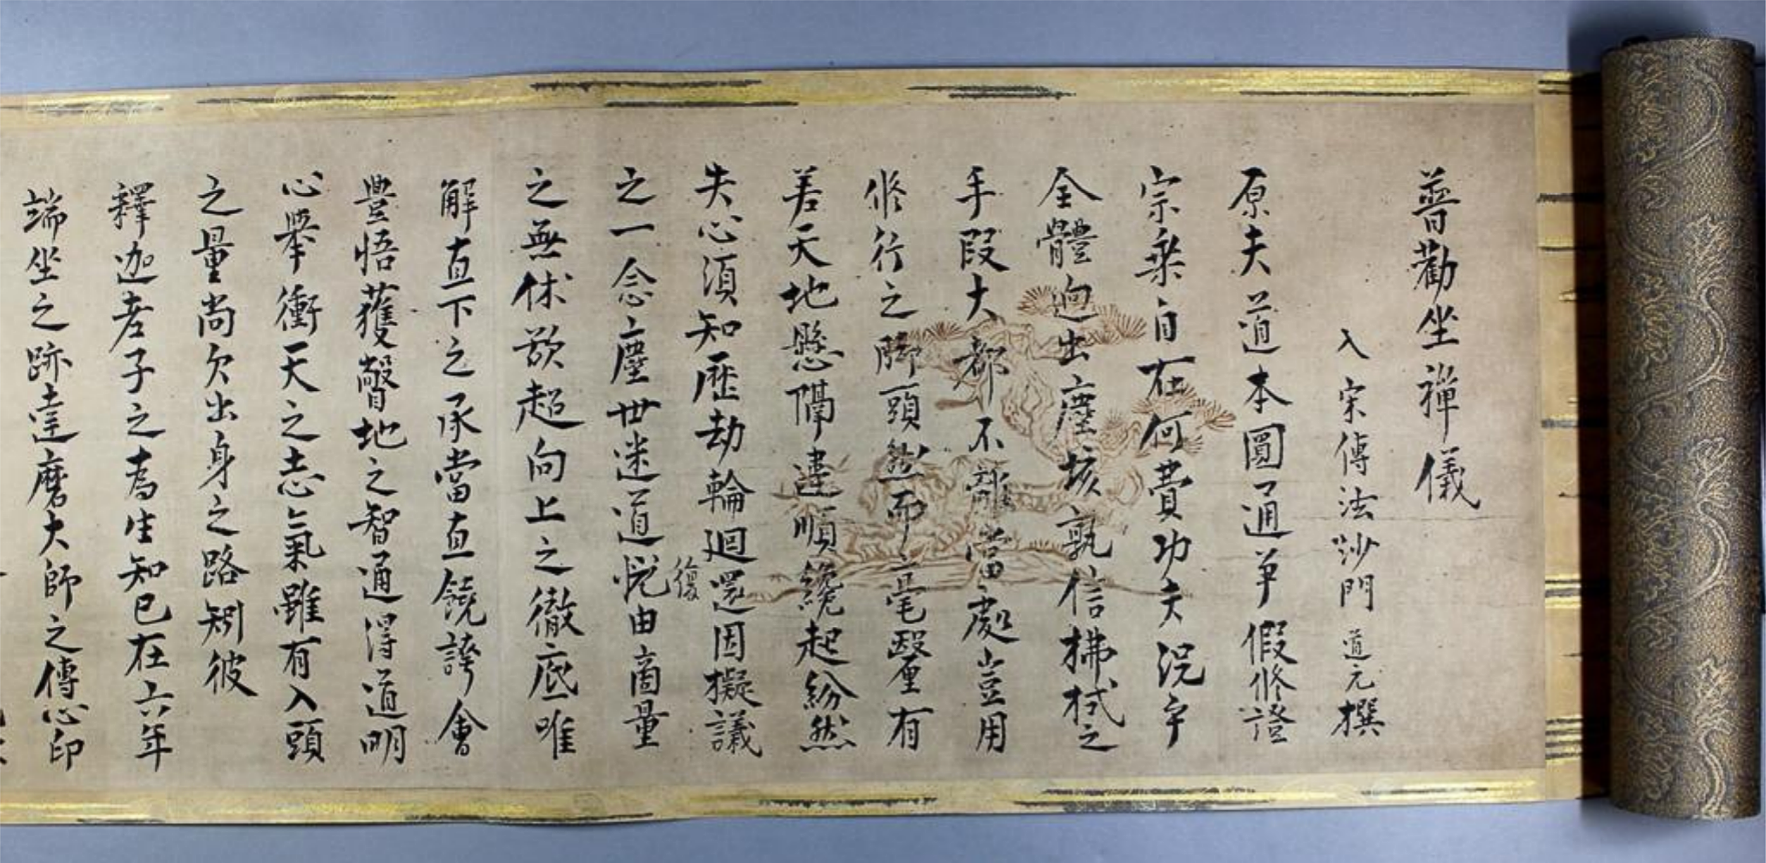 普勸坐禪儀
入宋傳法沙門道元撰
原夫道本圓通爭假修證
宗乘自在何費功夫況乎
全體逈出塵埃孰信拂拭之
手段大都不離當處豈用
修行之脚頭然而毫釐有
差天地懸隔違順纔起紛然
失心須知歷劫輪廻還因擬議
復
之一念塵世迷道悦由商量
之無休欲超向上之徹底唯
解直下之承當直饒誇會
豊悟獲瞥地之智通得道明
心擧衝天之志氣雖有入頭
之量尚欠出身之路矧彼
釋迦老子之為生知已在六年
端坐之跡達磨大師之傳心印